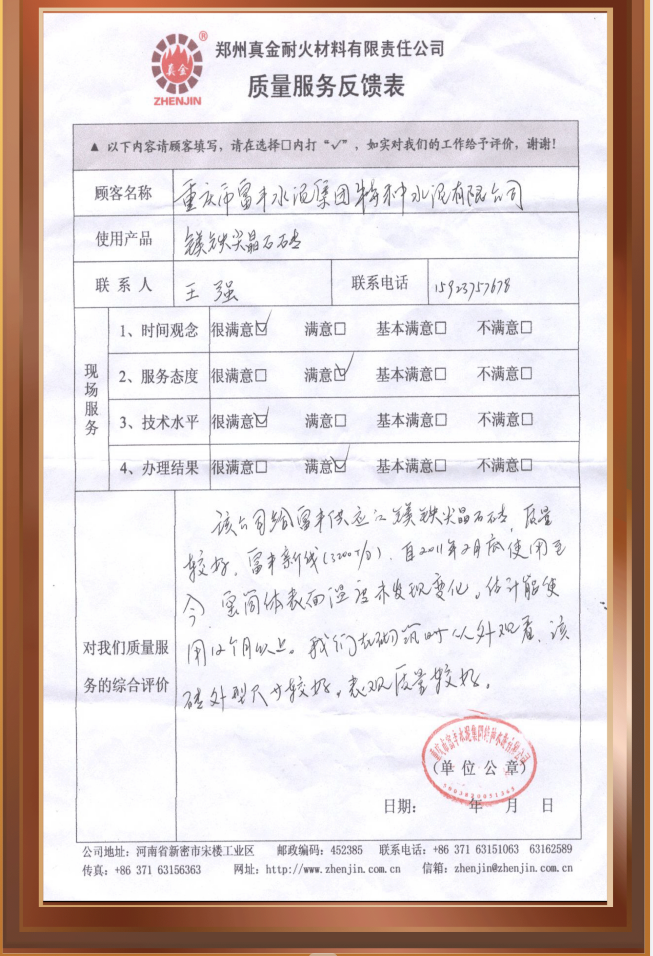 ®
真金
ZHENJIN
郑州真金耐火材料有限责任公司
质量服务反馈表
▲ 以下内容请顾客填写，请在选择□内打“√”，如实对我们的工作给予评价，谢谢！
顾客名称 重庆市富丰水泥集团特种水泥有限公司
使用产品 镁铁尖晶石砖
联系人 王强 联系电话 15923757678
现场服务
1、时间观念 很满意☑ 满意□ 基本满意□ 不满意□
2、服务态度 很满意□ 满意☑ 基本满意□ 不满意□
3、技术水平 很满意☑ 满意□ 基本满意□ 不满意□
4、办理结果 很满意□ 满意☑ 基本满意□ 不满意□
对我们质量服务的综合评价
该公司给富丰供应镁铁尖晶石砖，质量
较好，富丰新线(3200T/D)，自2011年2月底使用至
今，窑筒体表面温度未发现变化。估计能使
用12个月以上。我们在砌筑时从外观看，该
砖外型尺寸较好，表观质量较好。
重庆市富丰水泥集团特种水泥有限公司
（单位公章）
日期： 年 月 日
公司地址：河南省新密市宋楼工业区 邮政编码：452385 联系电话：+86 371 63151063 63162589
传真：+86 371 63156363 网址：http://www.zhenjin.com.cn 信箱：zhenjin@zhenjin.com.cn